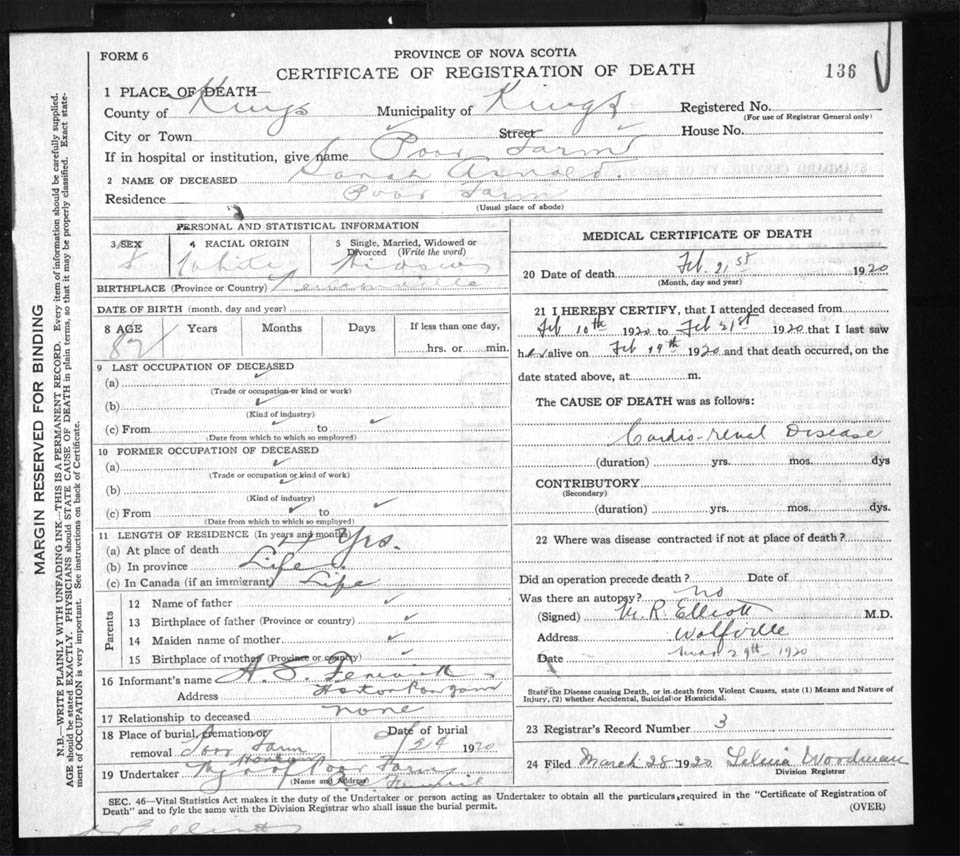 FORM 6
PROVINCE OF NOVA SCOTIA
CERTIFICATE OF REGISTRATION OF DEATH
136
1 PLACE OF DEATH
County of Kings Municipality of Kings Registered No.
(For use of Registrar General only)
City or Town Street House No.
If in hospital or institution, give name Poor Farm
2 NAME OF DECEASED Sarah Arnold.
Residence Poor Farm
(Usual place of abode)
PERSONAL AND STATISTICAL INFORMATION
3 SEX 4 RACIAL ORIGIN 5 Single, Married, Widowed or Divorced (Write the word)
White Widow
BIRTHPLACE (Province or Country)
DATE OF BIRTH (month, day and year)
8 AGE Years Months Days If less than one day,
82 hrs. or min.
9 LAST OCCUPATION OF DECEASED
(a)
(Trade or occupation or kind of work)
(b)
(Kind of industry)
(c) From to
(Date from which to which so employed)
10 FORMER OCCUPATION OF DECEASED
(a)
(Trade or occupation or kind of work)
(b)
(Kind of industry)
(c) From to
(Date from which to which so employed)
11 LENGTH OF RESIDENCE (In years and months)
(a) At place of death yrs.
(b) In province Life
(c) In Canada (if an immigrant) Life
Parents
12 Name of father
13 Birthplace of father (Province or country)
14 Maiden name of mother
15 Birthplace of mother (Province or country)
16 Informant's name A. S.
Address Poor Farm
17 Relationship to deceased none
18 Place of burial, cremation or removal Poor Farm Date of burial 24 1920
19 Undertaker of Poor Farm
(Name and Address)
MEDICAL CERTIFICATE OF DEATH
20 Date of death Feb. 21st 1920
(Month, day and year)
21 I HEREBY CERTIFY, that I attended deceased from
Feb 10th 1920 to Feb 21st 1920 that I last saw
her alive on Feb 19th 1920 and that death occurred, on the
date stated above, at m.
The CAUSE OF DEATH was as follows:
Cardio-renal Disease
(duration) yrs. mos. dys
CONTRIBUTORY
(Secondary)
(duration) yrs. mos. dys.
22 Where was disease contracted if not at place of death?
Did an operation precede death? Date of
Was there an autopsy? no
(Signed) M. R. Elliott M.D.
Address Wolfville
Date Mar 29th 1920
State the Disease causing Death, or in death from Violent Causes, state (1) Means and Nature of
Injury, (2) whether Accidental, Suicidal or Homicidal.
23 Registrar's Record Number 3
24 Filed March 28 1920 Woodman
Division Registrar
SEC. 46—Vital Statistics Act makes it the duty of the Undertaker or person acting as Undertaker to obtain all the particulars required in the "Certificate of Registration of
Death" and to fyle the same with the Division Registrar who shall issue the burial permit.
(OVER)
MARGIN RESERVED FOR BINDING
N.B.—WRITE PLAINLY WITH UNFADING INK—THIS IS A PERMANENT RECORD. Every item of information should be carefully supplied.
AGE should be stated EXACTLY. PHYSICIANS should STATE CAUSE OF DEATH in plain terms, so that it may be properly classified. Exact statement of OCCUPATION is very important. See instructions on back of Certificate.